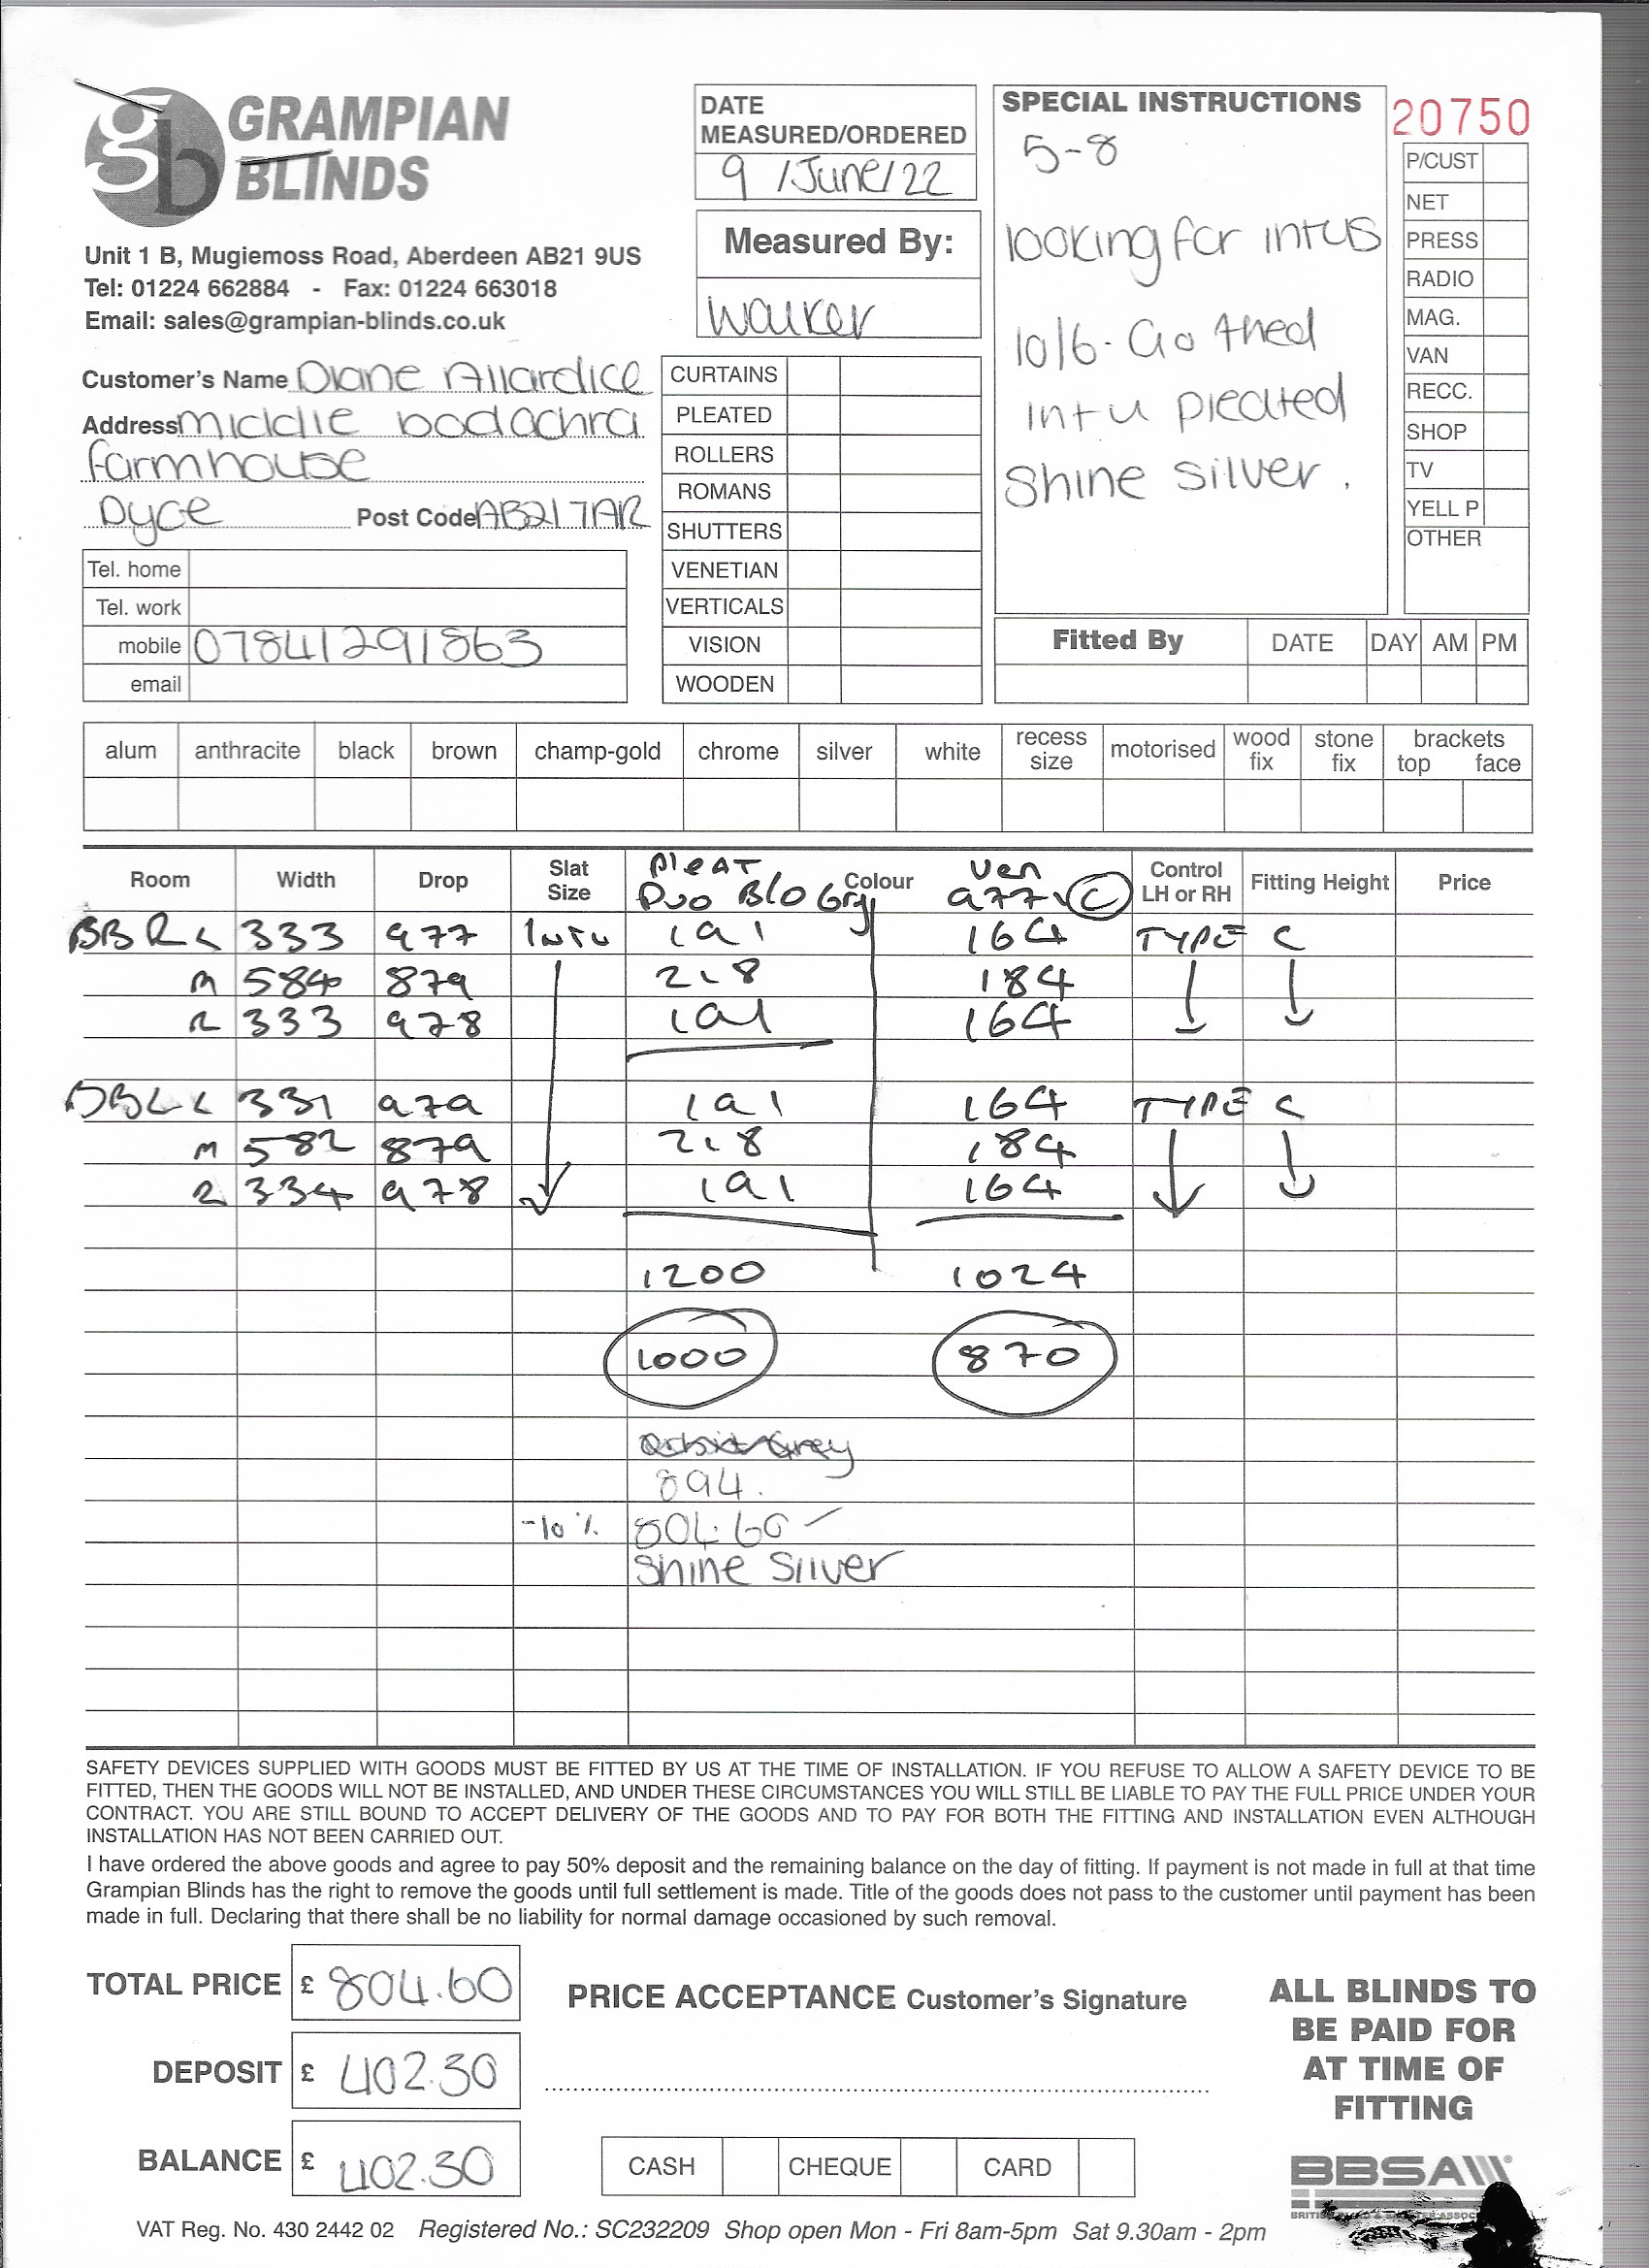 GRAMPIAN
BLINDS
Unit 1 B, Mugiemoss Road, Aberdeen AB21 9US
Tel: 01224 662884 - Fax: 01224 663018
Email: sales@grampian-blinds.co.uk
DATE
MEASURED/ORDERED
9 /June/22
Measured By:
Walker
SPECIAL INSTRUCTIONS
5-8
looking for intus
10/6. Go Ahed
Intu pleated
Shine Silver.
20750
P/CUST
NET
PRESS
RADIO
MAG.
VAN
RECC.
SHOP
TV
YELL P
OTHER
Customer's Name Diane Allardice
Address Middle bodachra
farmhouse
Dyce Post Code AB21 7AR
Tel. home
Tel. work
mobile 07841291863
email
CURTAINS
PLEATED
ROLLERS
ROMANS
SHUTTERS
VENETIAN
VERTICALS
VISION
WOODEN
Fitted By DATE DAY AM PM
alum anthracite black brown champ-gold chrome silver white recess size motorised wood fix stone fix brackets top face
Room Width Drop Slat Size Colour Control LH or RH Fitting Height Price
Pleat Ven
Duo Blo Gry 977 C
BBR L 333 977 INTU 191 164 TYPE C
M 584 879 218 184
R 333 978 191 164
BBL L 331 979 191 164 TYPE C
M 582 879 218 184
R 334 978 191 164
1200 1024
1000 870
894.
-10% 804.60
Shine Silver
SAFETY DEVICES SUPPLIED WITH GOODS MUST BE FITTED BY US AT THE TIME OF INSTALLATION. IF YOU REFUSE TO ALLOW A SAFETY DEVICE TO BE
FITTED, THEN THE GOODS WILL NOT BE INSTALLED, AND UNDER THESE CIRCUMSTANCES YOU WILL STILL BE LIABLE TO PAY THE FULL PRICE UNDER YOUR
CONTRACT. YOU ARE STILL BOUND TO ACCEPT DELIVERY OF THE GOODS AND TO PAY FOR BOTH THE FITTING AND INSTALLATION EVEN ALTHOUGH
INSTALLATION HAS NOT BEEN CARRIED OUT.
I have ordered the above goods and agree to pay 50% deposit and the remaining balance on the day of fitting. If payment is not made in full at that time
Grampian Blinds has the right to remove the goods until full settlement is made. Title of the goods does not pass to the customer until payment has been
made in full. Declaring that there shall be no liability for normal damage occasioned by such removal.
TOTAL PRICE £ 804.60
DEPOSIT £ 402.30
BALANCE £ 402.30
PRICE ACCEPTANCE Customer's Signature
CASH CHEQUE CARD
ALL BLINDS TO
BE PAID FOR
AT TIME OF
FITTING
BBSA
VAT Reg. No. 430 2442 02 Registered No.: SC232209 Shop open Mon - Fri 8am-5pm Sat 9.30am - 2pm